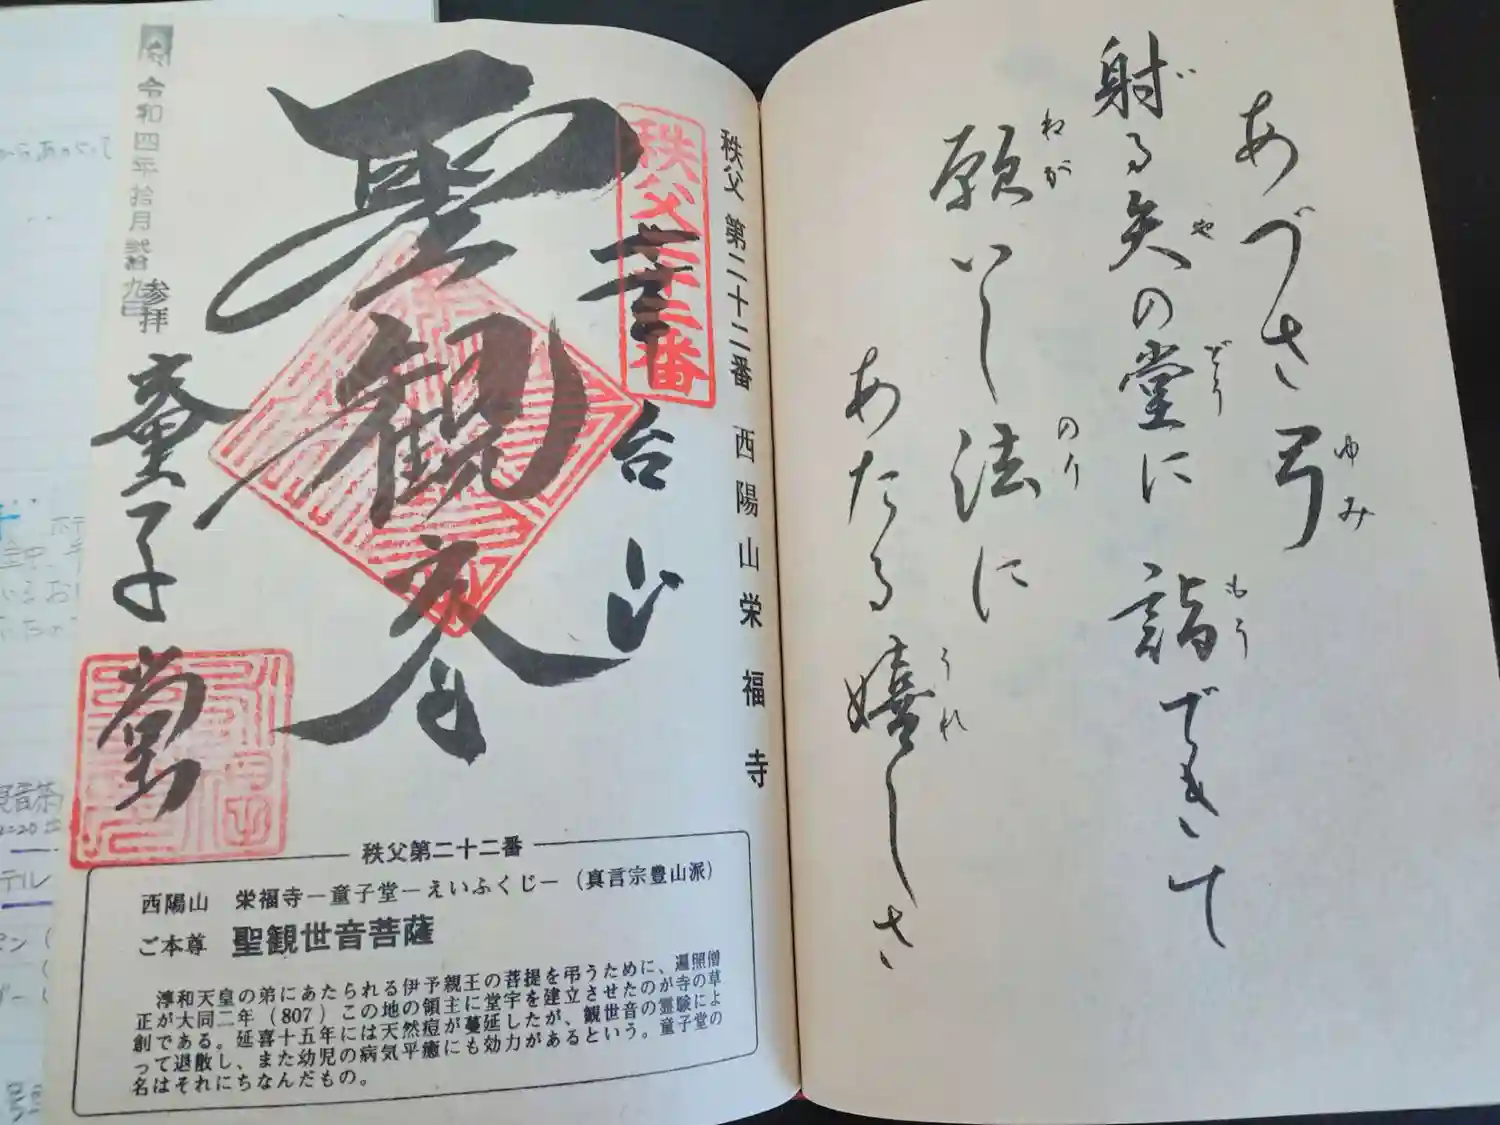 あづさ弓
ゆみ
射る矢の堂に詣できて
や
どう
もう
願いし法に
ねが
のり
あたる嬉しさ
うれ
秩父 第二十二番 西陽山栄福寺
秩父二十二番
華台山
聖観世音
童子堂
令和四年拾月弐拾九日
参拝
秩父第二十二番
西陽山 栄福寺―童子堂―えいふくじ―(真言宗豊山派)
ご本尊 聖観世音菩薩
淳和天皇の弟にあたられる伊予親王の菩提を弔うために、遍照僧
正が大同二年(807)この地の領主に堂宇を建立させたのが寺の草
創である。延喜十五年には天然痘が蔓延したが、観世音の霊験によ
って退散し、また幼児の病気平癒にも効力があるという。童子堂の
名はそれにちなんだもの。